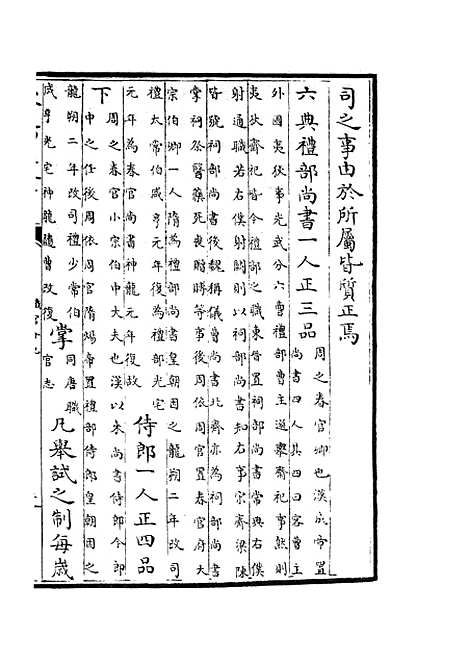 司之事由於所屬皆質正焉
六典禮部尚書一人正三品周之春官卿也漢成帝置
尚書四人其四曰客曹主
外國夷狄事光武分六曹禮部曹主選舉齋祀事然則
夷狄齋祀皆今禮部之職東晉置祠部尚書常與右僕
射通職若右僕射闕則以祠部尚書知右事宋齊梁陳
皆號祠部尚書後魏稱儀曹尚書北齊亦為祠部尚書
掌祠祭醫藥死喪贈賻等事後周依周官置春官府大
宗伯卿一人隋為禮部尚書皇朝因之龍朔二年改司
禮太常伯咸亨元年復為禮部光宅
元年為春官尚書神龍元年復故侍郎一人正四品
下周之春官小宗伯中大夫也漢以來尚書侍郎今郎
中之任後周依周官隋煬帝置禮部侍郎皇朝因之
龍朔二年改司禮少常伯
咸亨光宅神龍隨曹改復掌同唐職
官志凡舉試之制每歲